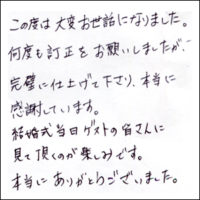 この度は大変お世話になりました。
何度も訂正をお願いしましたが、
完璧に仕上げて下さり、本当に
感謝しています。
結婚式当日ゲストの皆さんに
見て頂くのが楽しみです。
本当にありがとうございました。